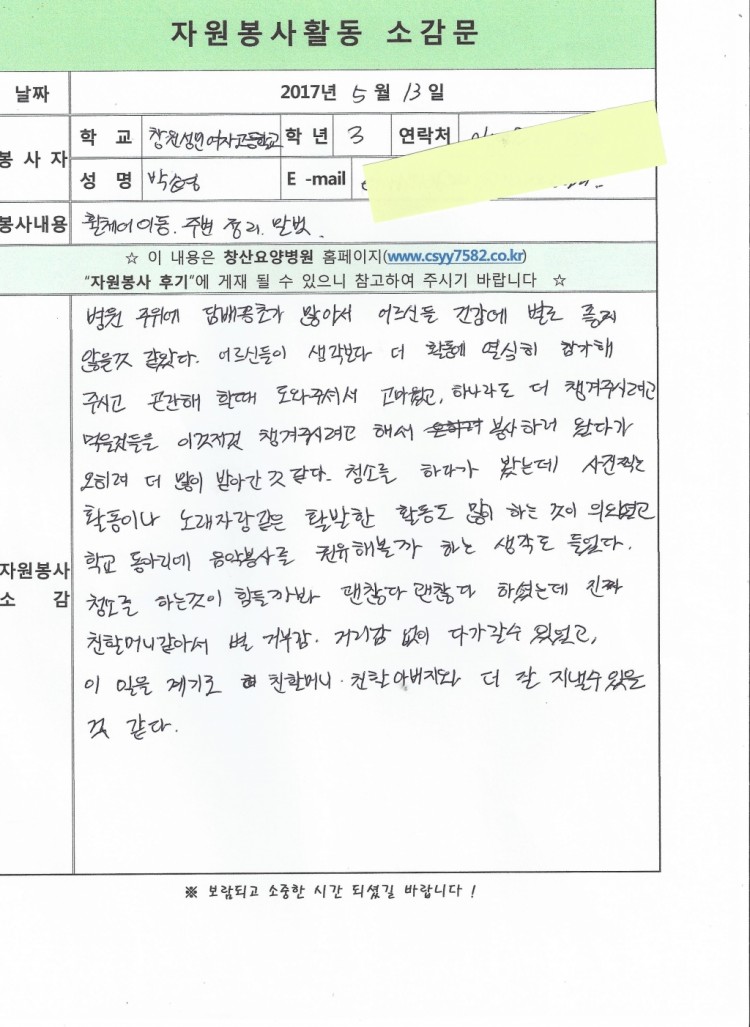 자원봉사활동 소감문
날짜 2017년 5월 13일
봉사자 학 교 창원성민여자고등학교 학 년 3 연락처
성 명 박승영 E -mail
봉사내용 휠체어 이동. 주변 정리. 말벗.
☆ 이 내용은 창산요양병원 홈페이지(www.csyy7582.co.kr)
"자원봉사 후기"에 게재 될 수 있으니 참고하여 주시기 바랍니다 ☆
자원봉사
소 감
병원 주위에 담배꽁초가 많아서 어르신들 건강에 별로 좋지
않을것 같았다. 어르신들이 생각보다 더 활동에 열심히 참가해
주시고 곤란해 할때 도와주셔서 고마웠고, 하나라도 더 챙겨주시려고
먹을것들을 이것저것 챙겨주시려고 해서 봉사하러 왔다가
오히려 더 많이 받아간 것 같다. 청소를 하다가 봤는데 사진찍는
활동이나 노래자랑같은 활발한 활동도 많이 하는 것이 의외였고
학교 동아리에 음악봉사를 권유해볼까 하는 생각도 들었다.
청소를 하는것이 힘들까봐 괜찮다 괜찮다 하셨는데 진짜
친할머니같아서 별 거부감. 거리감 없이 다가갈수 있었고,
이 일을 계기로 친할머니·친할아버지와 더 잘 지낼수 있을
것 같다.
※ 보람되고 소중한 시간 되셨길 바랍니다 !